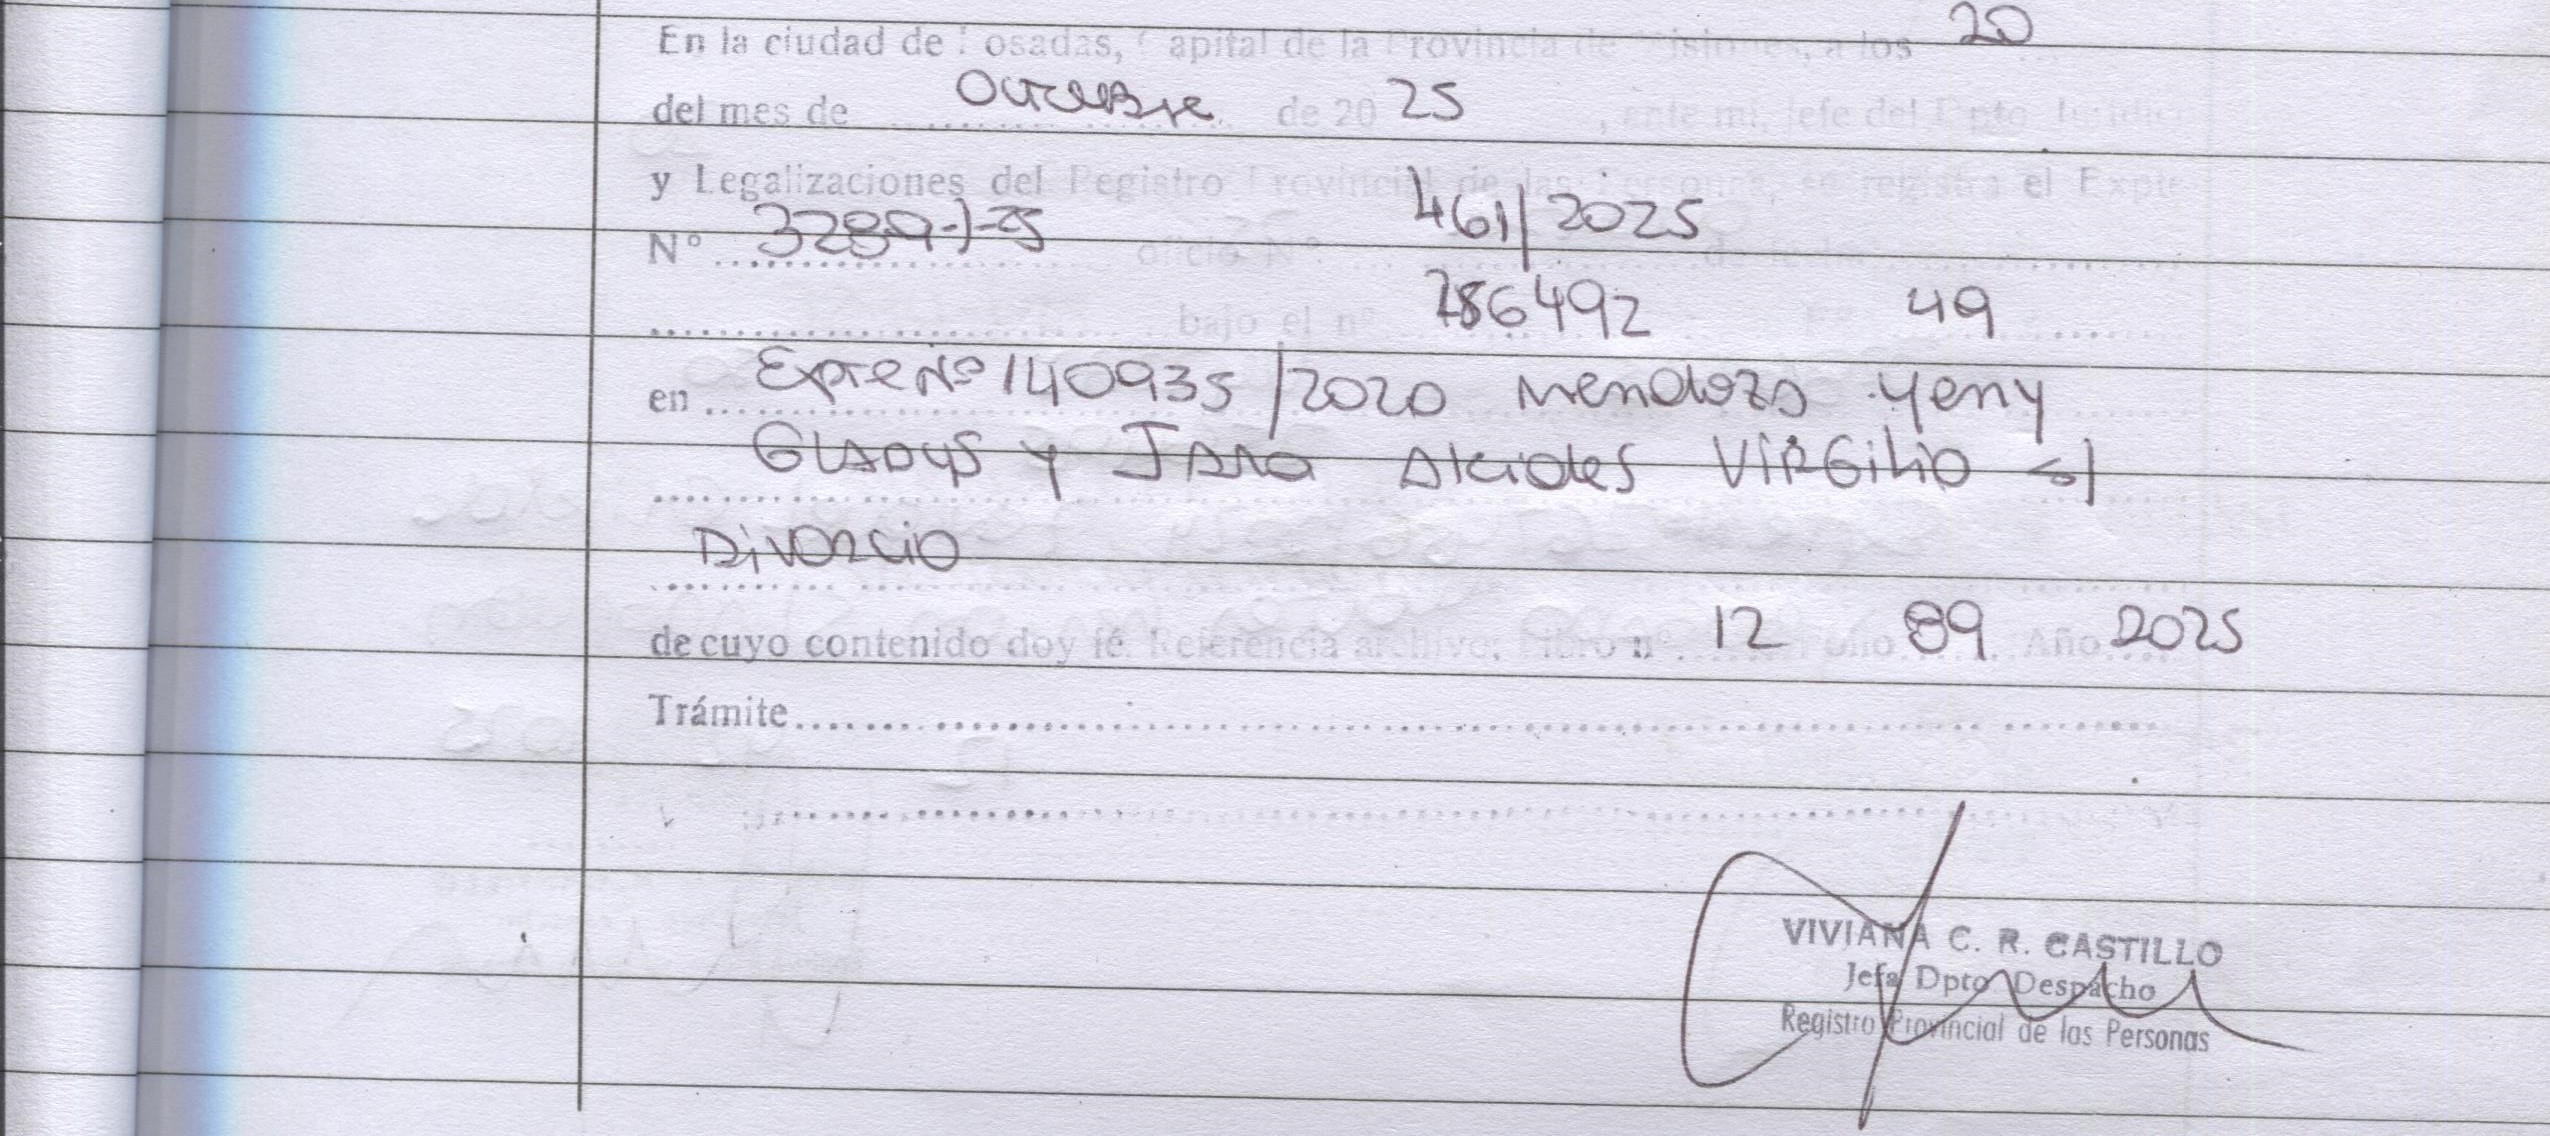 En la ciudad de Posadas, Capital de la Provincia de Misiones, a los 20
del mes de Octubre de 20 25, ante mi, Jefe del Dpto. Jurídico
y Legalizaciones del Registro Provincial de las Personas, se registra el Expte
Nº 3289-J-25 oficio Nº 461/2025 de fecha
bajo el nº 786492 Fº 49
en Expte Nº 140935/2020 Mendoza Yeny
Gladys y Jara Alcides Virgilio s/
Divorcio
de cuyo contenido doy fé. Referencia archivo: Libro nº 12 Folio 89 Año 2025
Trámite
VIVIANA C. R. CASTILLO
Jefa Dpto Despacho
Registro Provincial de las Personas